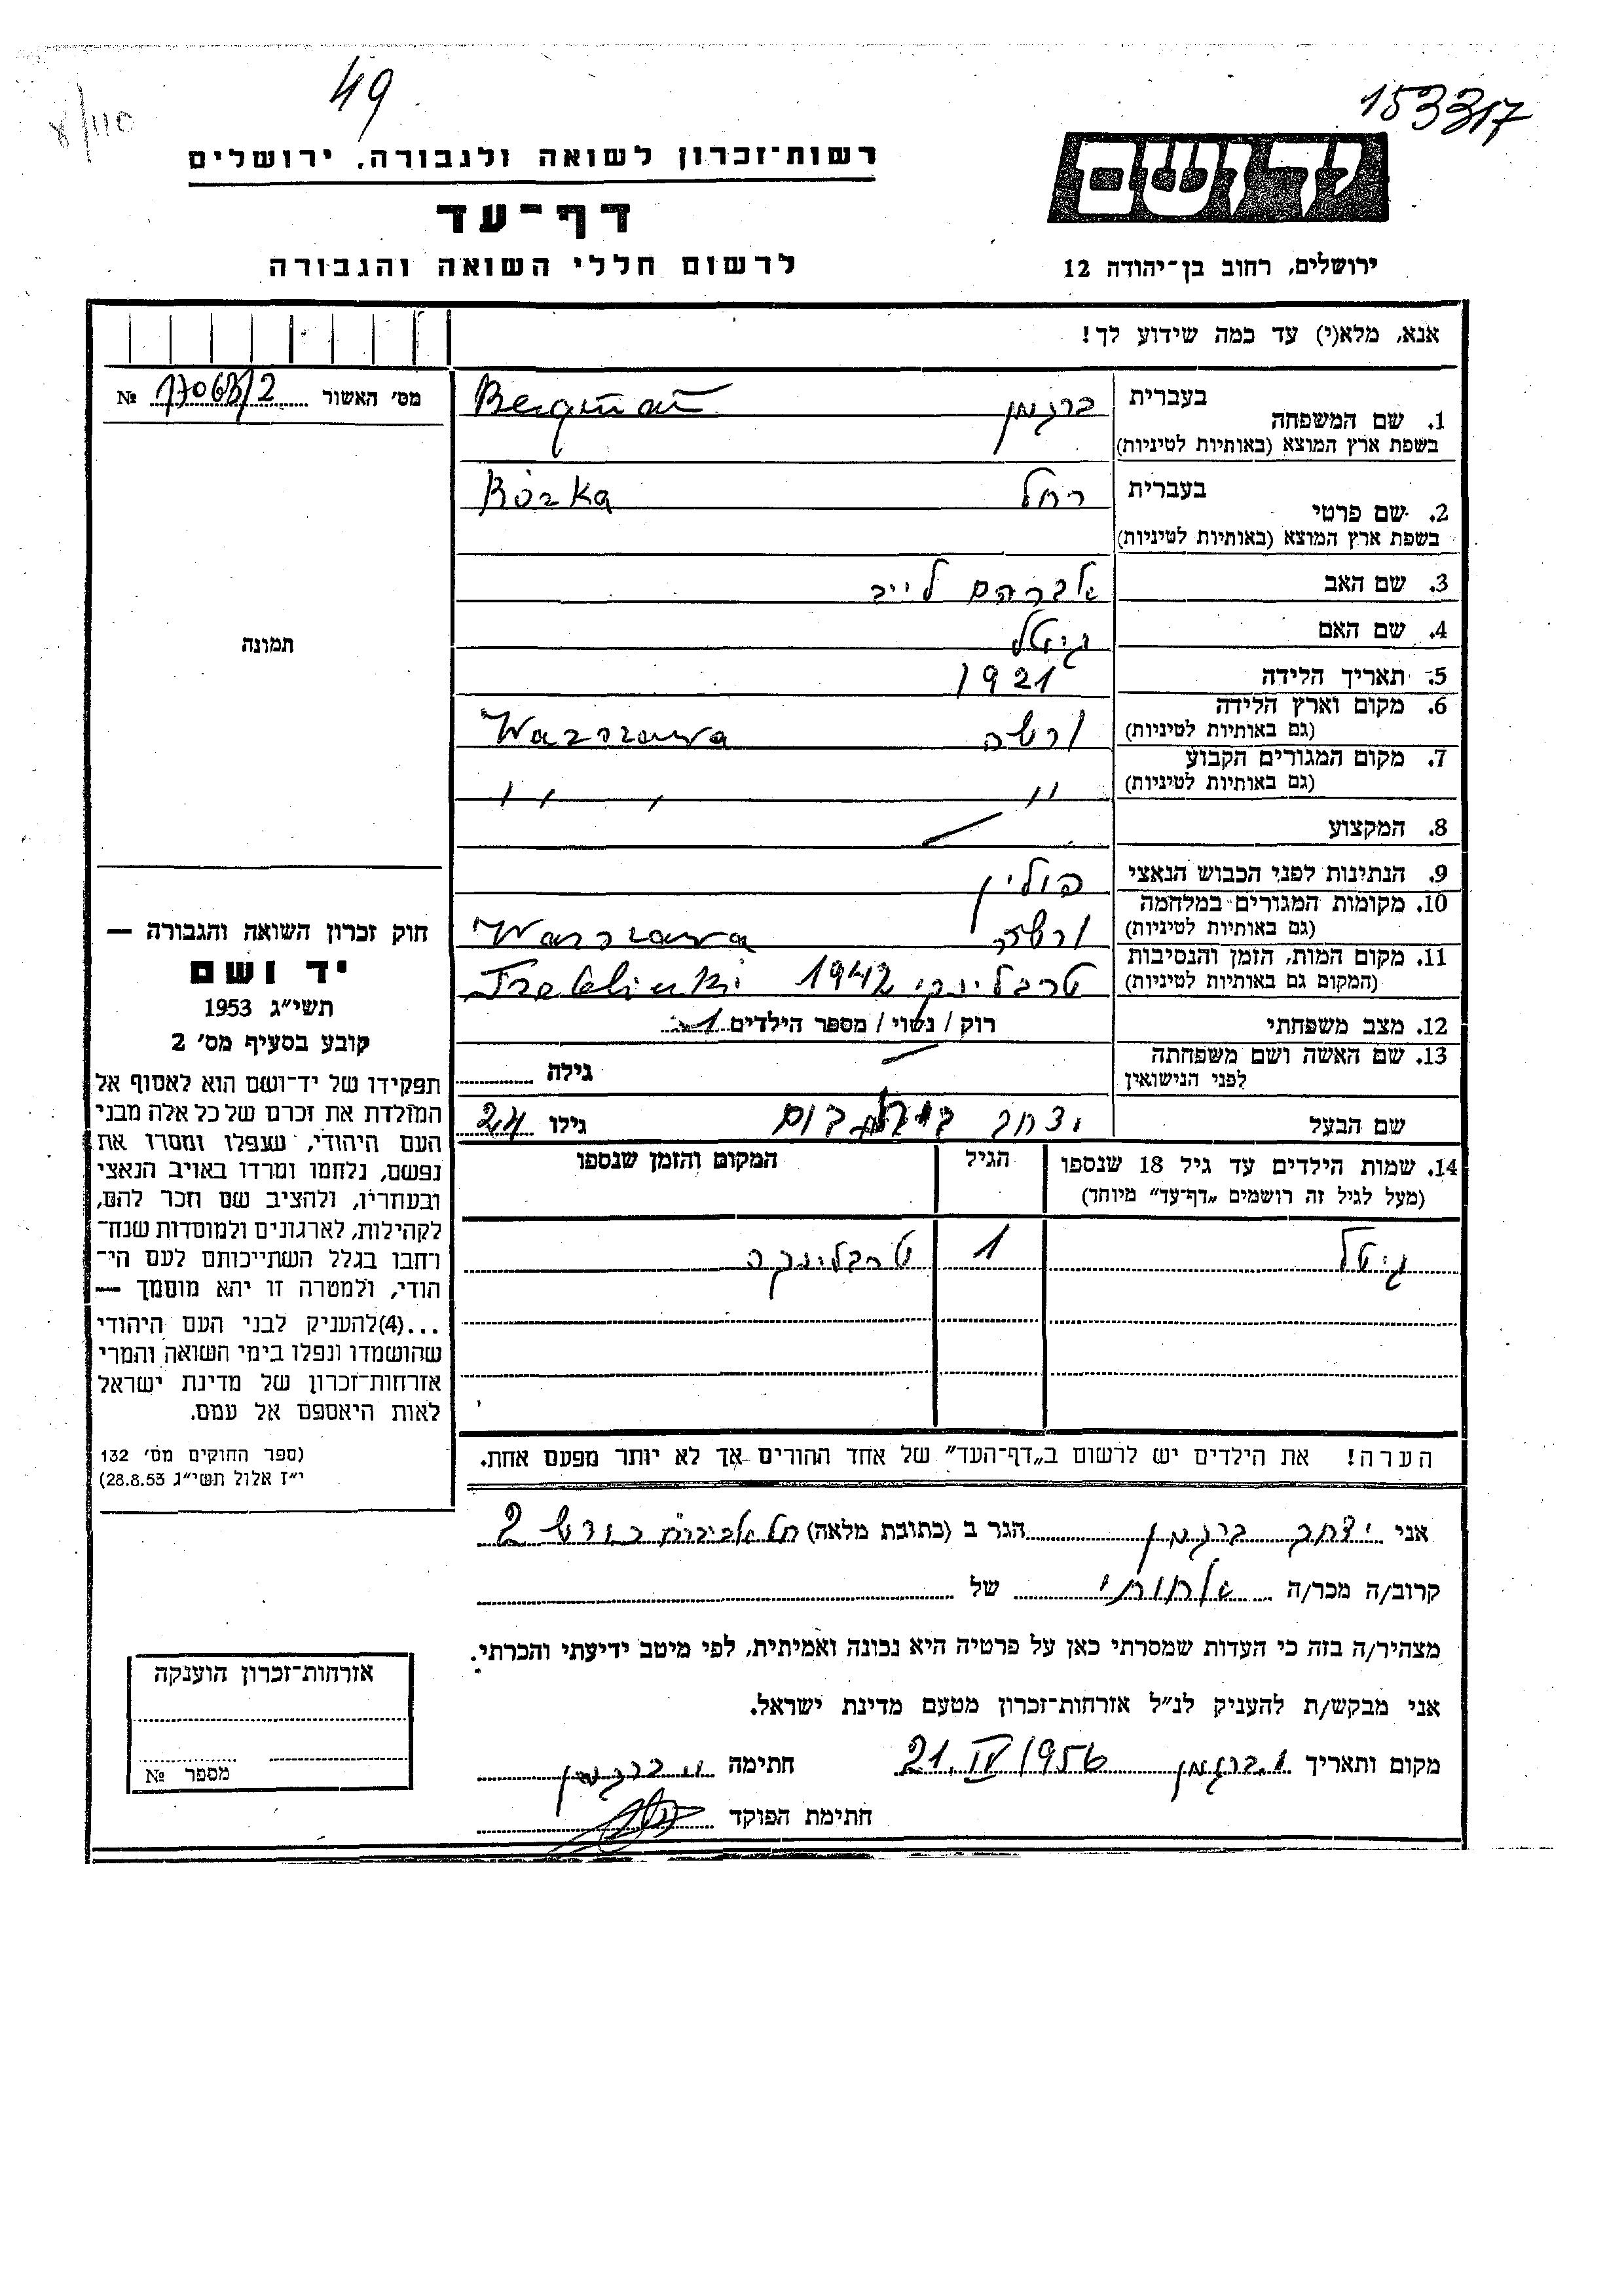 49
153317
8/110
יד ושם
רשות־זכרון לשואה ולגבורה, ירושלים
דף־עד
לרשום חללי השואה והגבורה
ירושלים, רחוב בן־יהודה 12
אנא, מלא(י) עד כמה שידוע לך!
מס׳ האשור №
1. שם המשפחה בעברית ברגמן Bergman
בשפת ארץ המוצא (באותיות לטיניות)
2. שם פרטי בעברית רחל Rózka
בשפת ארץ המוצא (באותיות לטיניות)
3. שם האב אברהם לייב
4. שם האם גיטל
5. תאריך הלידה 1921
6. מקום וארץ הלידה ורשה Warszawa
(גם באותיות לטיניות)
7. מקום המגורים הקבוע " "
(גם באותיות לטיניות)
8. המקצוע
9. הנתינות לפני הכבוש הנאצי פולין
10. מקומות המגורים במלחמה ורשה Warszawa
(גם באותיות לטיניות)
11. מקום המות, הזמן והנסיבות טרבלינקי 1942 Treblinki
(המקום גם באותיות לטיניות)
12. מצב משפחתי רוק / נשוי / מספר הילדים 1
13. שם האשה ושם משפחתה
לפני הנישואין גילה
שם הבעל יצחק גילו 24
14. שמות הילדים עד גיל 18 שנספו הגיל המקום והזמן שנספו
(מעל לגיל זה רושמים „דף־עד” מיוחד)
גיטל 1 טרבלינקה
הערה! את הילדים יש לרשום ב„דף־העד” של אחד ההורים אך לא יותר מפעם אחת.
אני יצחק ברגמן הגר ב (כתובת מלאה) תל אביב 2
קרוב/ה מכר/ה אחותי של
מצהיר/ה בזה כי העדות שמסרתי כאן על פרטיה היא נכונה ואמיתית, לפי מיטב ידיעתי והכרתי.
אני מבקש/ת להעניק לנ״ל אזרחות־זכרון מטעם מדינת ישראל.
מקום ותאריך י. ברגמן 21.IV 1956 חתימה י. ברגמן
חתימת הפוקד
תמונה
חוק זכרון השואה והגבורה —
יד ושם
תשי״ג 1953
קובע בסעיף מס׳ 2
תפקידו של יד־ושם הוא לאסוף אל
המולדת את זכרם של כל אלה מבני
העם היהודי, שנפלו ומסרו את
נפשם, נלחמו ומרדו באויב הנאצי
ובעוזריו, ולהציב שם וזכר להם,
לקהילות, לארגונים ולמוסדות שנח־
רבו בגלל השתייכותם לעם הי־
הודי, ולמטרה זו יהא מוסמך —
...(4)להעניק לבני העם היהודי
שהושמדו ונפלו בימי השואה והמרי
אזרחות־זכרון של מדינת ישראל
לאות היאספם אל עמם.
(ספר החוקים מס׳ 132
י״ז אלול תשי״ג 28.8.53)
אזרחות־זכרון הוענקה
מספר №